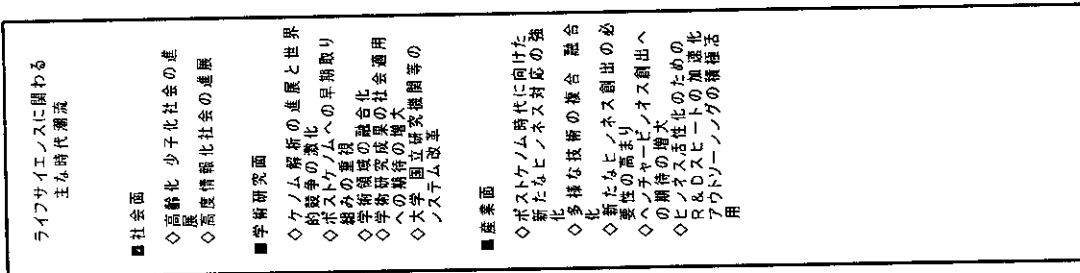 ライフサイエノスに関わる
主な時代潮流
■社会面
◇高齢化 少子化社会の進
展
◇高度情報化社会の進展
■学術研究面
◇ケノム解析の進展と世界
的競争の激化
◇ポストケノムへの早期取り
組みの重視
◇学術領域の融合化
◇学術研究成果の社会適用
への期待の増大
◇大学 国立研究機関等の
ノステム改革
■産業面
◇ポストケノム時代に向けた
新たなヒノネス対応の強
化
◇多様な技術の複合 融合
化
◇新たなヒノネス創出の必
要性の高まり
◇ヘノチャーヒノネス創出へ
の期待の増大
◇ヒノネス活性化のための
R&Dスヒートの加速化
アウトソーノノグの積極活
用